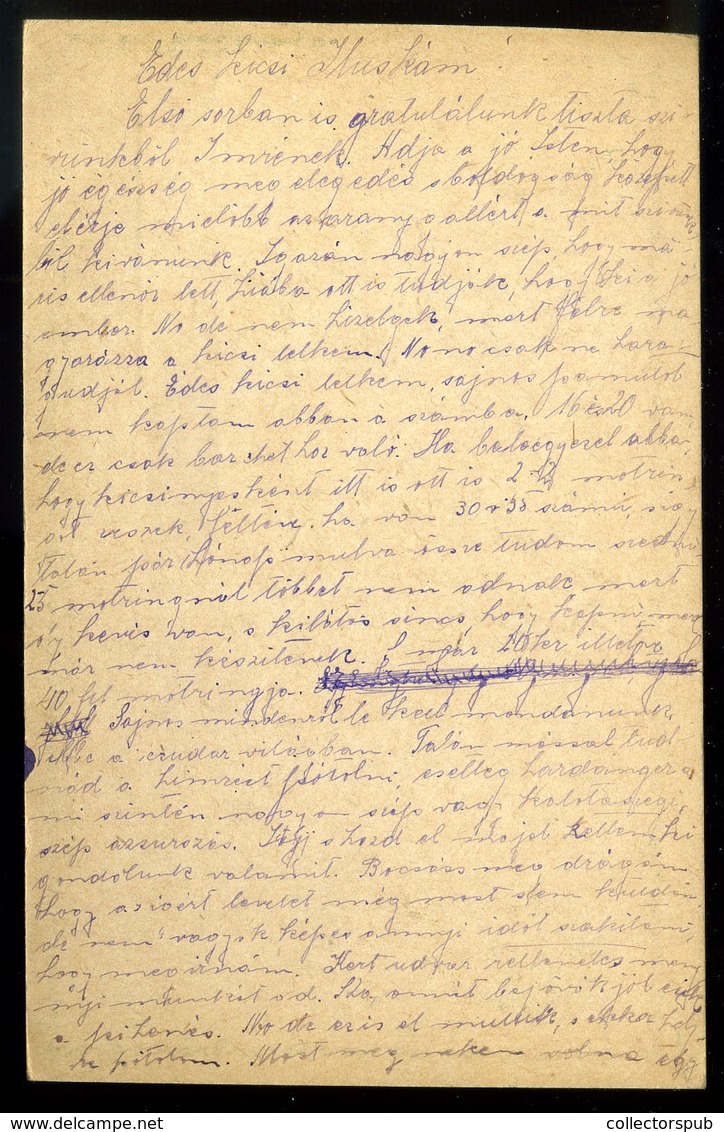 Édes kicsi Iluskám!
Első sorban is gratulálunk tiszta szi-
vünkből Imrének. Adja a jó Isten, hogy
jó egészség megelégedés s boldogság között
elérje mielőbb az aranygallért s mit szivünk
ből kivánunk. Igazán nagyon szép, hogy má
ris ellenőr lett, hiába ott is tudják, hogy ki a jó
ember. No de nem hizelgek, mert félre ma
gyarázza a kicsi lelkem. No no csak ne hara-
gudjál. Édes kicsi lelkem, sajnos pamutot
nem kaptam abban a számba. 16 és 20 van,
de ez csak barchet hoz való. Ha beleegyezel abba,
hogy kicsinyesként itt is ott is 2-2 motrin
got veszek, féltéve ha van 30 v 35 számú, úgy
talán pár hónap mulva össze tudom szedni
25 motringnál többet nem adnak mert
oly kevés van, s kilátás sincs, hogy kapni mert
már nem készitenek. S már 20 ker illetve
40 fill motringja.
Sajnos mindenről le kell mondanunk
ebbe a czudar világban. Talán mással tud
nád a himzést pótolni, esetleg hardanger a
mi szintén nagyon szép vagy kalotaszegi,
szép azsurozás. Irj s hozd el majd kettem ki
gondolunk valamit. Bocsáss meg drágám
hogy a igért levelet még most sem küldöm,
de nem vagyok képes annyi időt szakitani,
hogy megirnám. Kert udvar rettenetes meny
nyi munkát ad. S ha, amint bejövök jól esik
a pihenés. No de ez is el mulik, s akkor helyre
pótolom. Most meg nekem volna egy